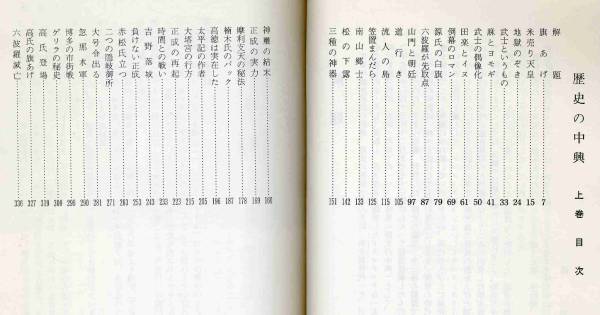 歴史の中興 上巻目次
解題
旗あげ……7
米売り天皇……15
地獄のぞき……24
武士というもの……33
麻とヨモギ……41
武士の偶像化……50
田楽とイヌ……61
倒幕のロマン……69
源氏の白旗……
六波羅が先取点……87
山門と朝廷……97
道行き……105
流人の島……115
笠置まんだら……125
南山郷士……133
松の下露……142
三種の神器……151
神器の結末……160
正成の実力……169
摩利支天の秘法……178
楠木氏のバック……187
高徳は実在した……196
太平記の作者……205
大塔宮の行方……215
正成の再起……223
時間との戦い……233
吉野落城……243
負けない正成……253
赤松氏立つ……263
二つの隠岐御所……271
大号令出る……281
忽那水軍……290
博多の市街戦……298
ゲリラの秘史……308
高氏登場……319
高氏の旗あげ……327
六波羅滅亡……336